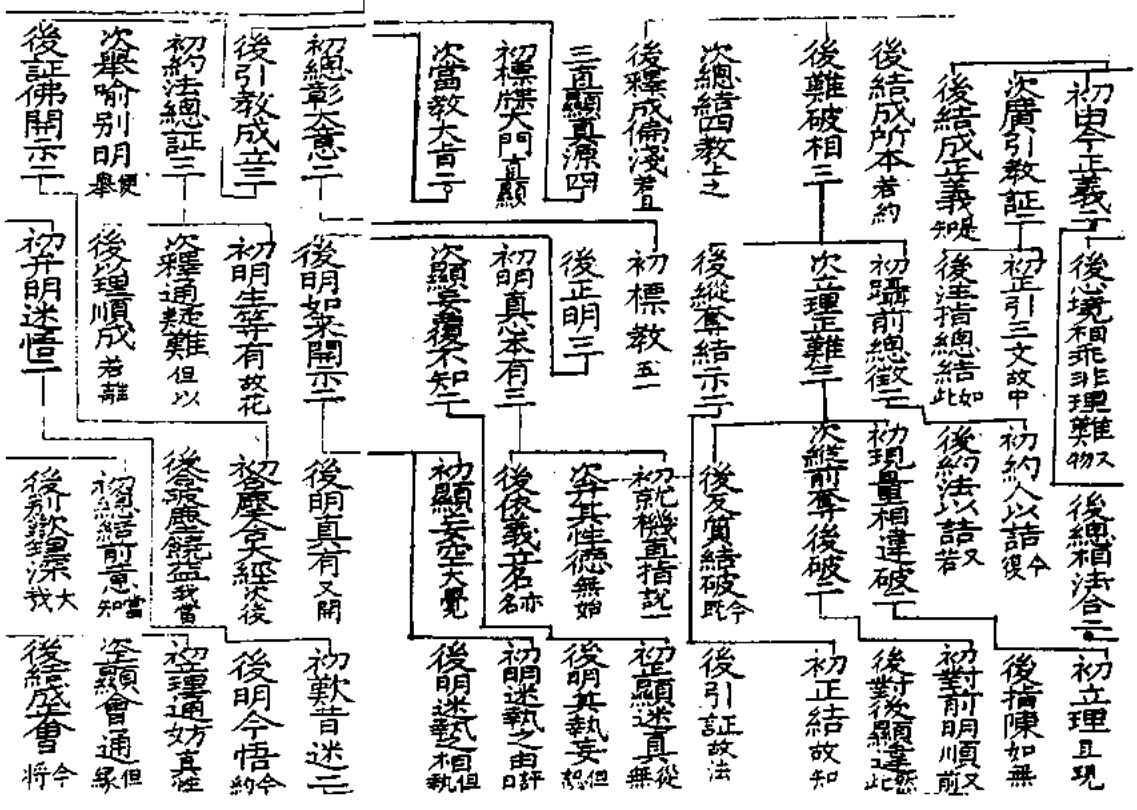 初由今正義二
次廣引教証二
後結成正義知是
後結成所本若約
後難破相三
次總結四教上之
後釋成偏淺若且
三直顯真源四
初標牒大門直顯
次當教大旨二
初總彰大意二
後引教成立三
初約法總証三
次舉喻別明舉便
後証佛開示二
後心境相乖非理難物又
初正引三文故中
後准指總結此如
初躡前總徵二
次立理正難三
後縱奪結示二
初標教五一
後正明三
初明真心本有三
次顯妄覆不知二
後明如來開示二
初明生等有故花
次釋通疑難但以
後以理順成若離
初弁明迷悟二
後總相法合二
初約人以詰復今
後約法以詰若又
初現量相違破二
次縱前奪後破二
後反質結破既今
初就機直指說一
次弁其性德無始
後依義立名名亦
初顯妄空大覺
後明真有又開
初塵含大經次後
後破塵饒益我當
初總結前意知當
後別歎理深我大
初立理且現
後指陳如無
初對前明順前又
後對後顯違此然
初正結故知
後引証故法
初正顯迷真無從
後明其執妄但
初明迷執之由日評
後明迷執之相執但
初歎昔迷二
後明今悟約今
初立理通妨真性
次顯會通緣但
後結成會將今